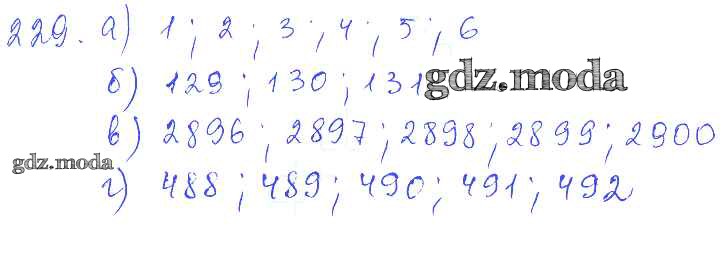 229. а) 1 ; 2 ; 3 ; 4 ; 5 ; 6
б) 129 ; 130 ; 131 gdz.moda
в) 2896 ; 2897 ; 2898 ; 2899 ; 2900
gdz.moda
г) 488 ; 489 ; 490 ; 491 ; 492